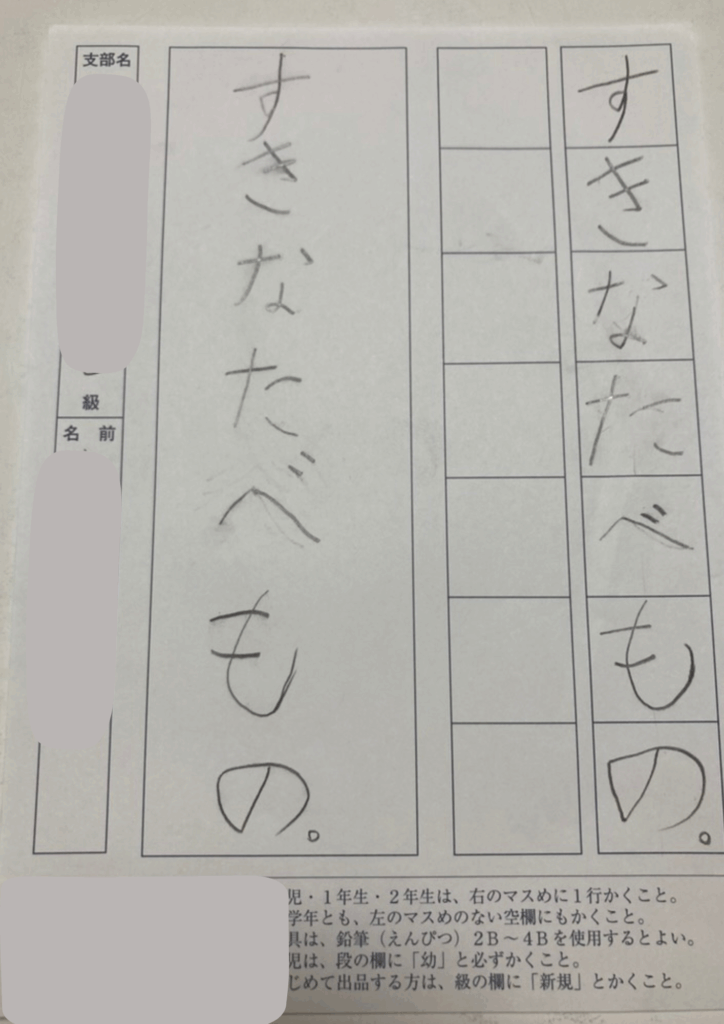 すきなたべもの。
すきなたべもの。
支部名
級
名前
児・1年生・2年生は、右のマスめに1行かくこと。
学年とも、左のマスめのない空欄にもかくこと。
具は、鉛筆（えんぴつ）2B～4Bを使用するとよい。
児は、段の欄に「幼」と必ずかくこと。
じめて出品する方は、級の欄に「新規」とかくこと。